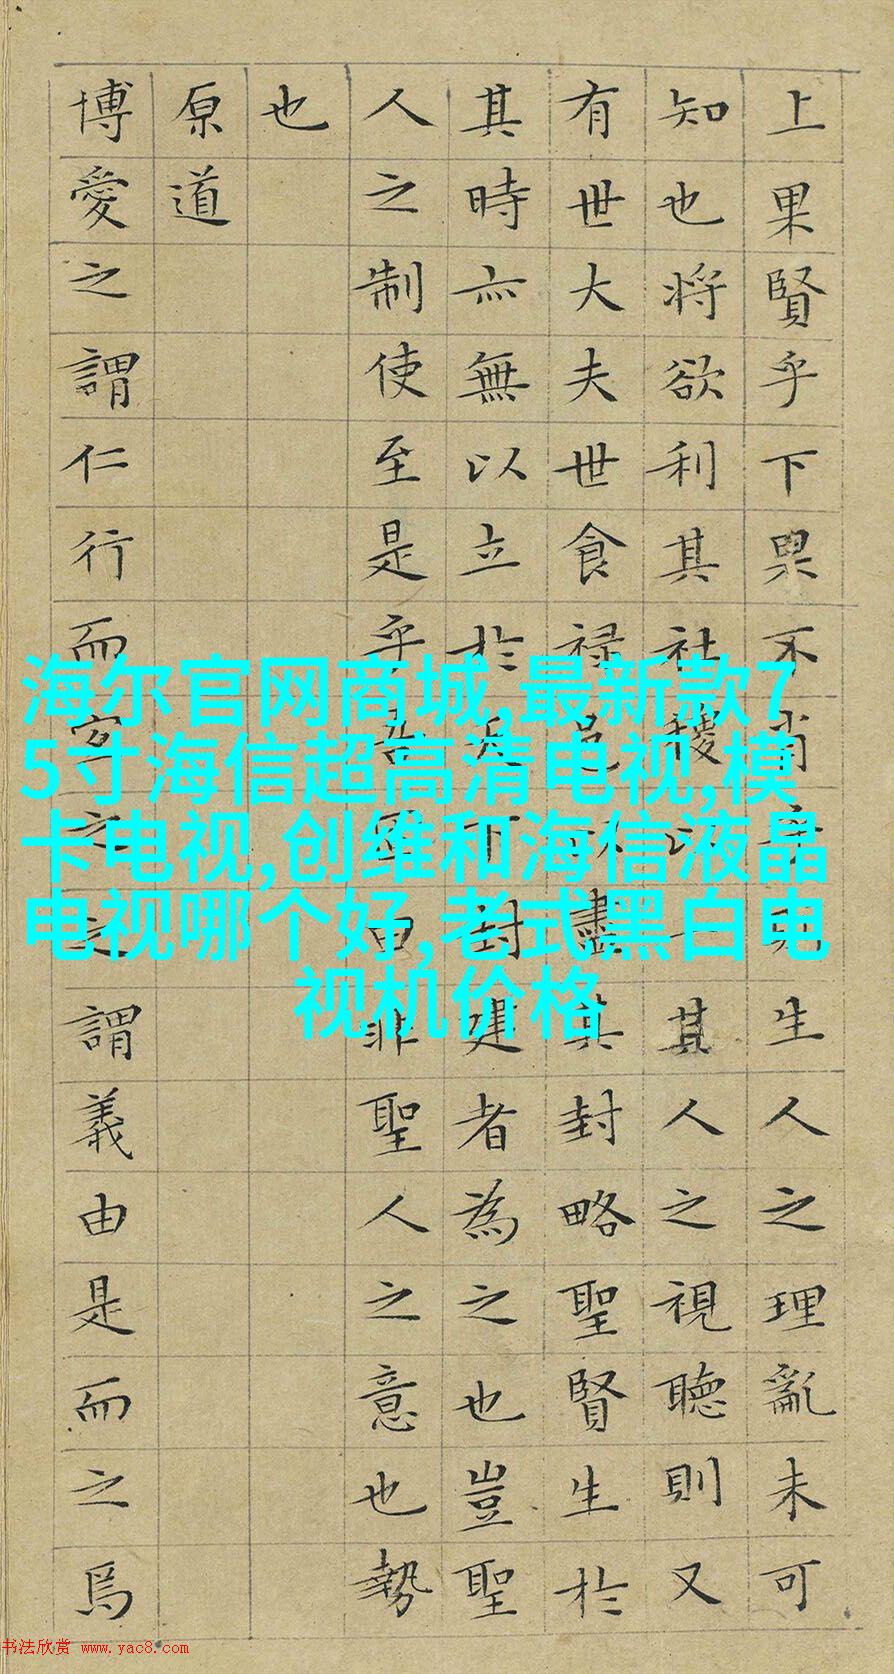 上果賢乎下果不肖乎則生人之理亂未可
知也將欲利其社稷以一其人之視聽則又
有世大夫世食祿邑以盡其封略聖賢生於
其時亦無以立於天下封建者為之也豈聖
人之制使至是乎吾固曰非聖人之意也勢
也
原道
博愛之謂仁行而宜之之謂義由是而之焉
海尔官网商城,最新款7
5寸海信超高清电视,模
卡电视,创维和海信液晶
电视哪个好,老式黑白电
视机价格
书法欣赏 www.yac8.com